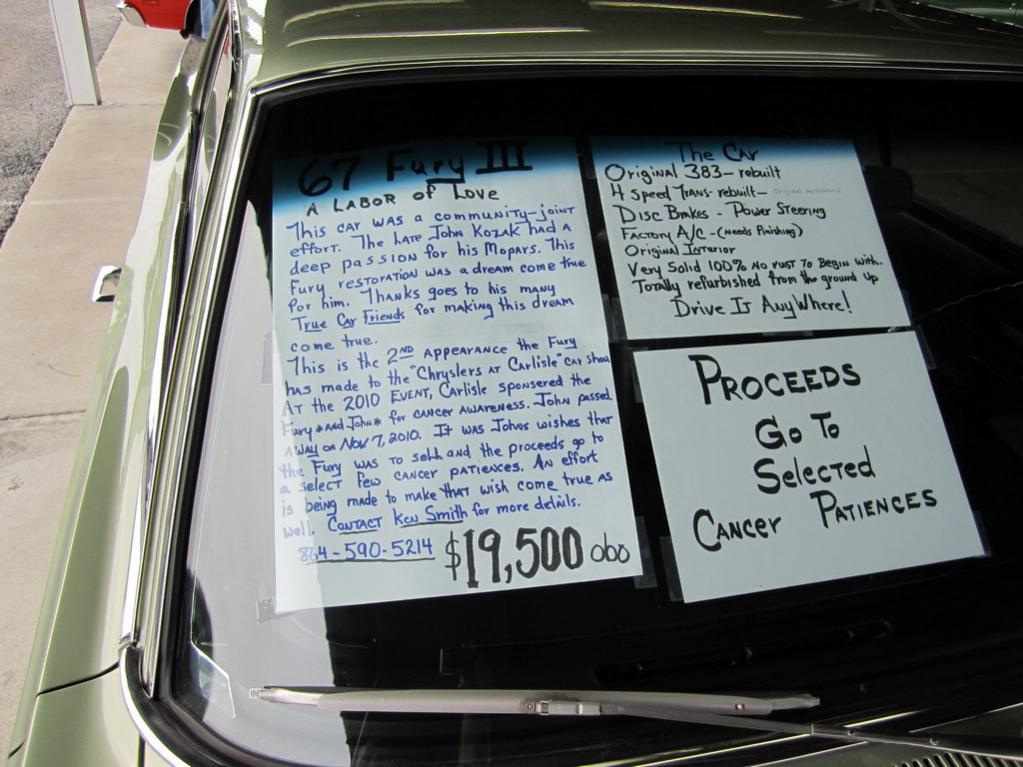 67 Fury III
A LABOR of Love
This car was a community-joint
effort. The Late John Kozak had a
deep passion for his Mopars. This
Fury restoration was a dream come true
for him. Thanks goes to his many
True Car Friends for making this dream
come true.
This is the 2ND Appearance the Fury
has made to the "Chryslers at Carlisle" car show
At the 2010 EVENT, Carlisle sponsered the
Fury *AND John* for cancer awareness. John passed
away on Nov 7, 2010. It was Johns wishes that
the Fury was to sell and the proceeds go to
a select few cancer patiences. An effort
is being made to make that wish come true as
well. Contact Ken Smith for more details.
864-590-5214 $19,500 obo
The Car
Original 383- rebuilt
4 Speed Trans- rebuilt- original automatic
Disc Brakes - Power Steering
Factory A/C - (needs finishing)
Original Interior
Very Solid 100% no rust to Begin with.
Totally refurbished from the ground up
Drive It AnyWhere!
PROCEEDS
Go To
Selected
Cancer PATIENCES